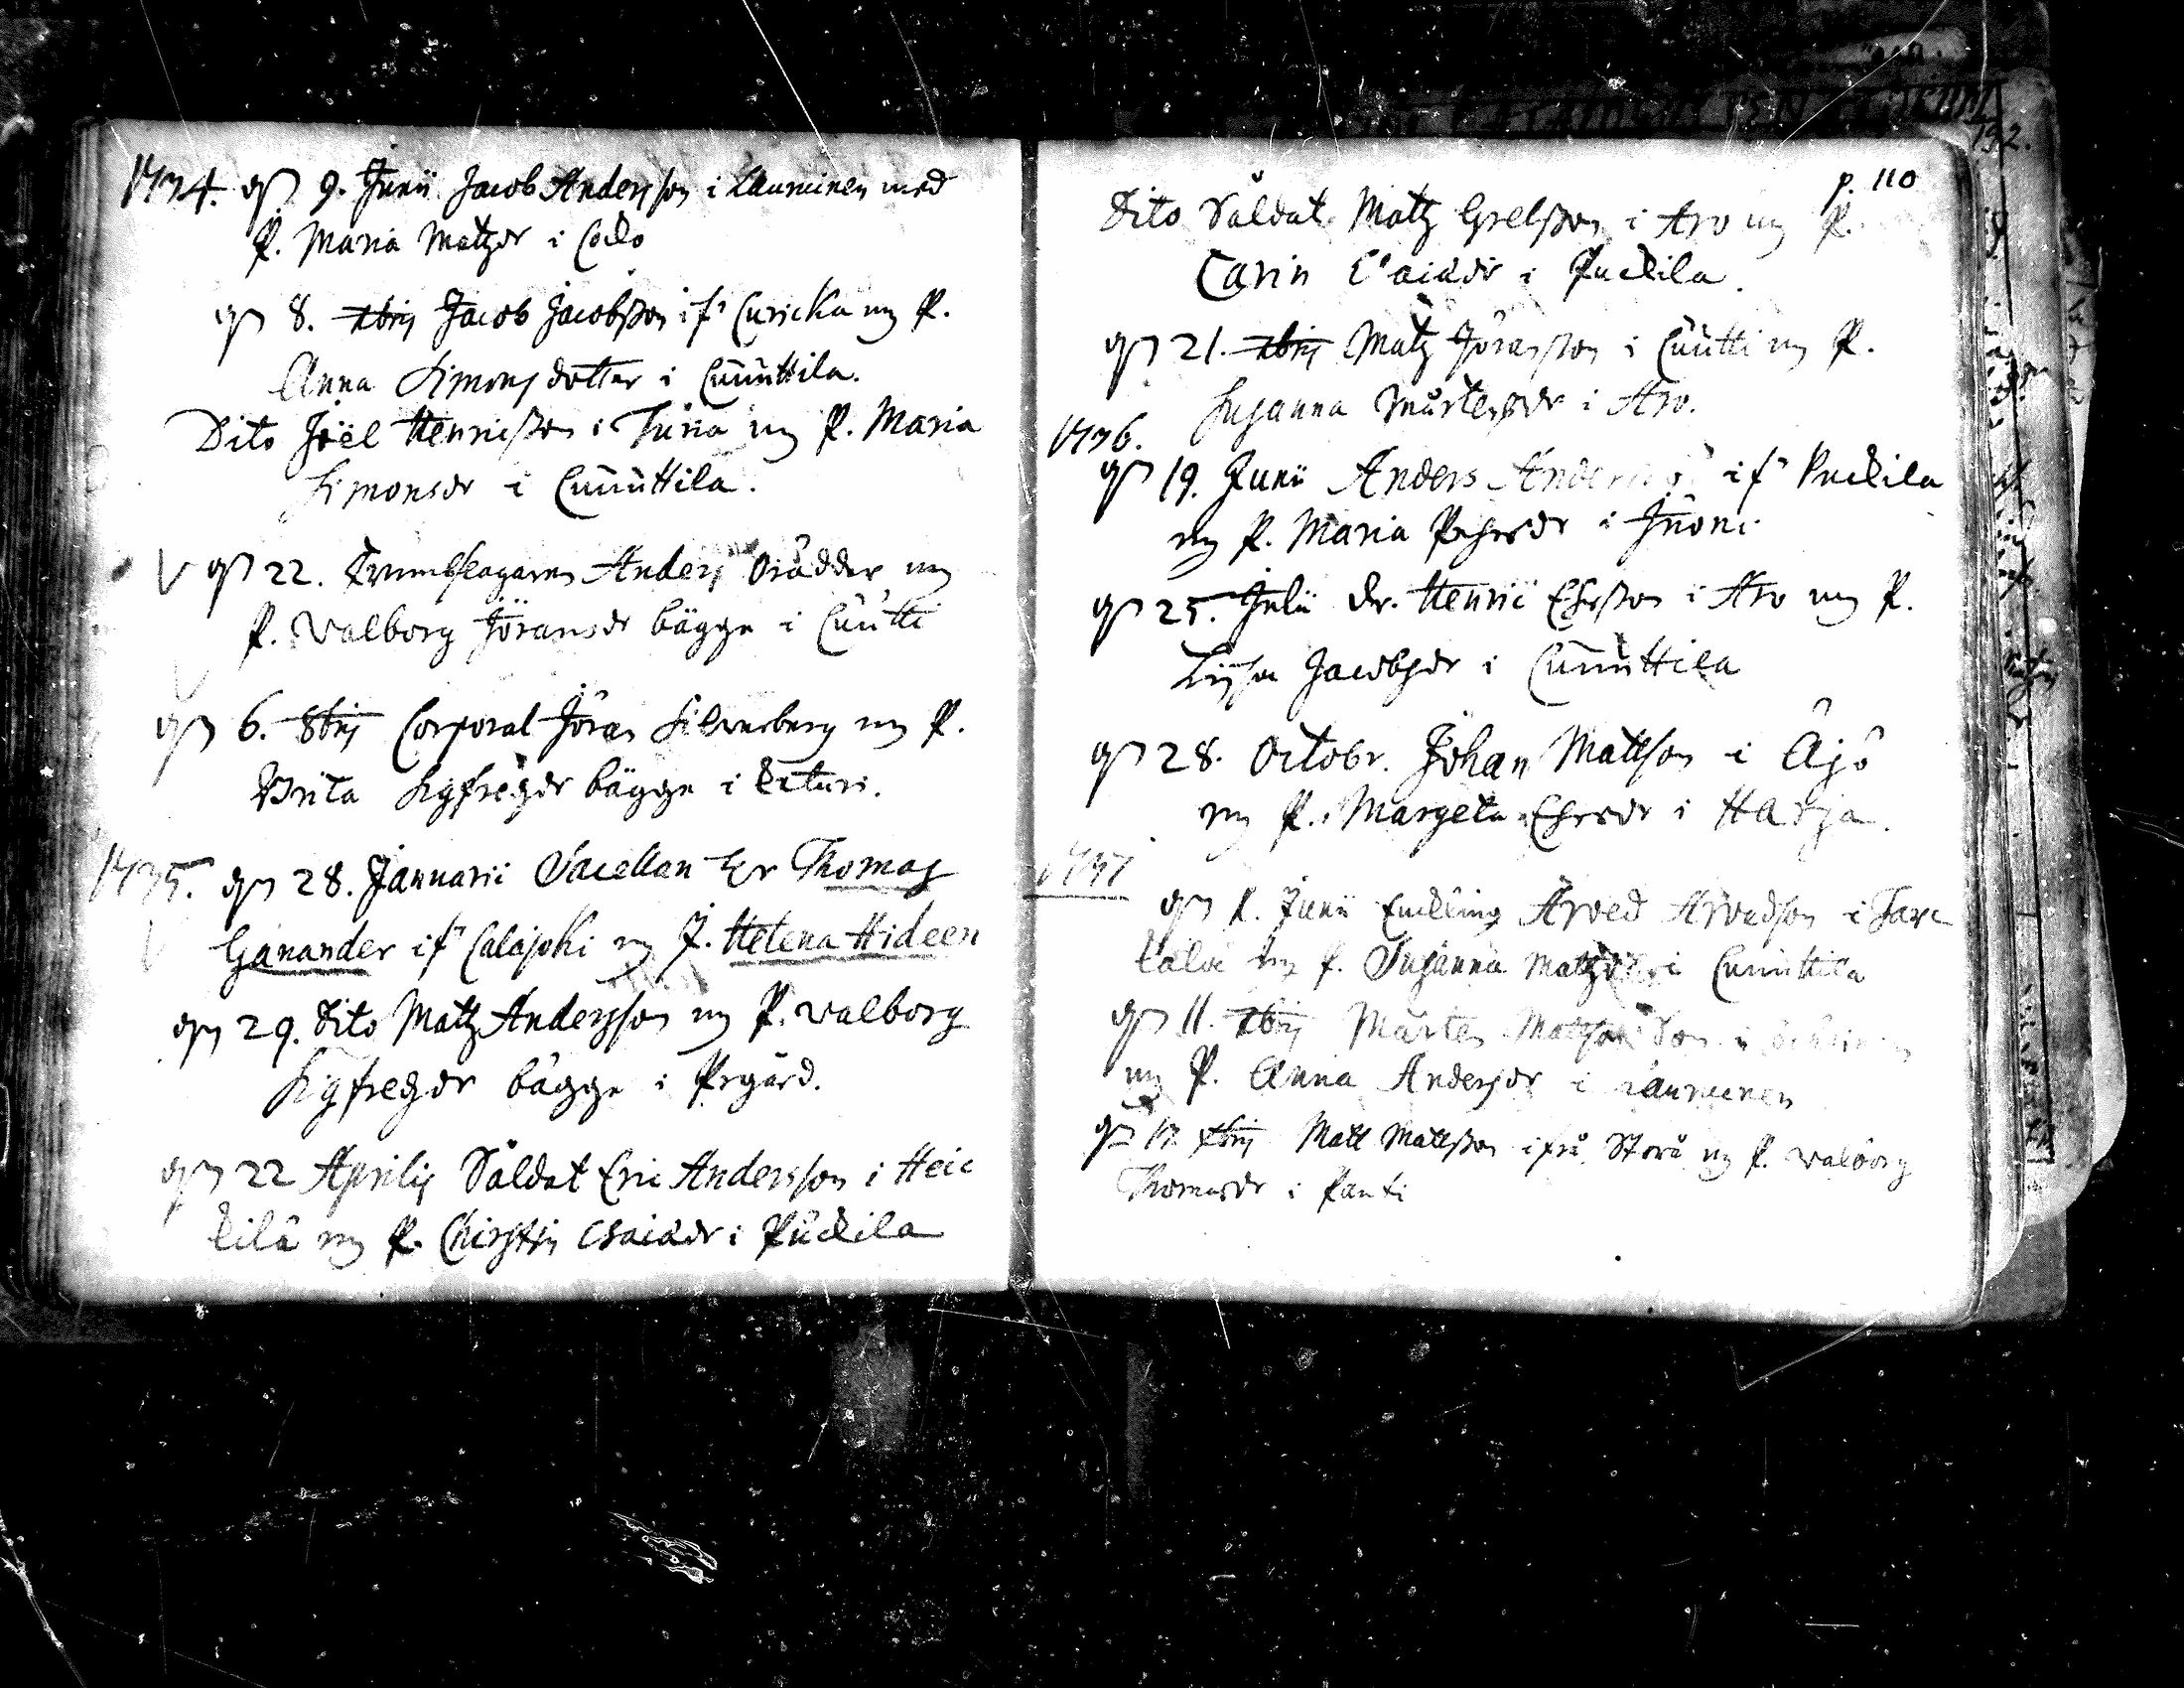 1734. 9. Junii Jacob Andersson i Lauruinen med
P. Maria Matzdr i Codo
8. xbrij Jacob Jacobsson if Curicka m P.
Anna Simonsdotter i Cuuuttila.
Dito Joël Henricsson i Turia m P. Maria
Simonsdr i Cuuuttila.
22. Trumbslagaren Anders Orädder m
P. Walborg Jöransdr bägge i Cuutti
6. 8brij Corporal Jöran Silverberg m P.
Brita Sigfregdr bägge i
1735. 28. Januarii Sacellan Hr Thomas
Ganander if Calajoki m J. Helena Hideen
29. Dito Matz Andersson m P. Walborg
Sigfregdr bägge i Prgård.
22 Aprilis Såldat Eric Andersson i Heic
kilä m P. Chirstin Esaiædr i Puckila
p. 110
Dito Såldat Matz Grelsson i Aro m P.
Carin Esaiædr i Puckila.
21. xbrij Matz Jöransson i Cuutti m P.
Susanna Mårtensdr i Aro.
1736.
19. Junii Anders Andersson if Puckila
m P. Maria Pehrsdr i Juoni
25. Julii Dr. Henric Ehrsson i Aro m P.
Lijsa Jacobsdr i Cuuuttila
28. Octobr. Johan Mattson i Äjö
m P. Margeta Ehrsdr i Harja.
1737
Junii Enckling Arved Arvedson i Taxe
m P. Susanna Matzdr i Cuuuttila
11. xbrij Mårten Matsson
m P. Anna Andersdr i Lauruinen
xbrij Matt Mattsson ifrå Storå m P. Walborg
Thomasdr i Panti
192.